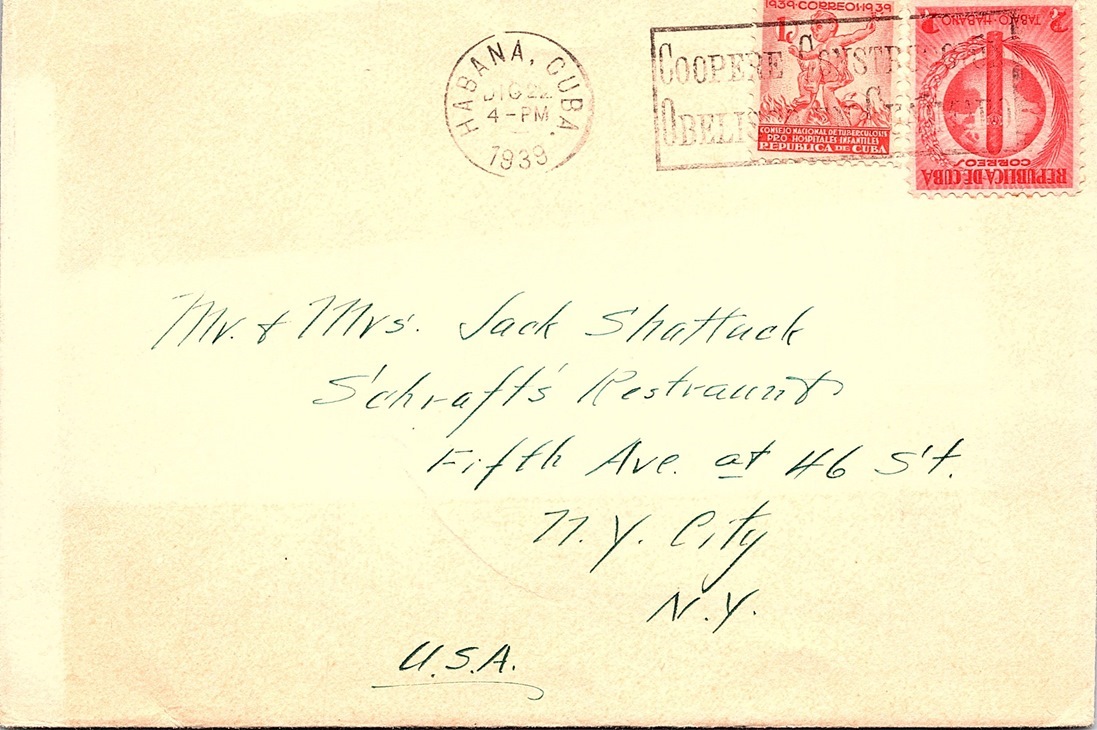 HABANA, CUBA.
DIC 22
4-PM
1939
COOPERE CONSTR
OBELIS
1939·CORREOS·1939
1c
CONSEJO NACIONAL DE TUBERCULOSIS
PRO HOSPITALES INFANTILES
REPUBLICA DE CUBA
REPUBLICA DE CUBA
CORREOS
2 2
TABACO·HABANO
Mr. & Mrs. Jack Shattuck
Schraft's Restraunt
Fifth Ave. at 46 St.
N.Y. City
N.Y.
U.S.A.